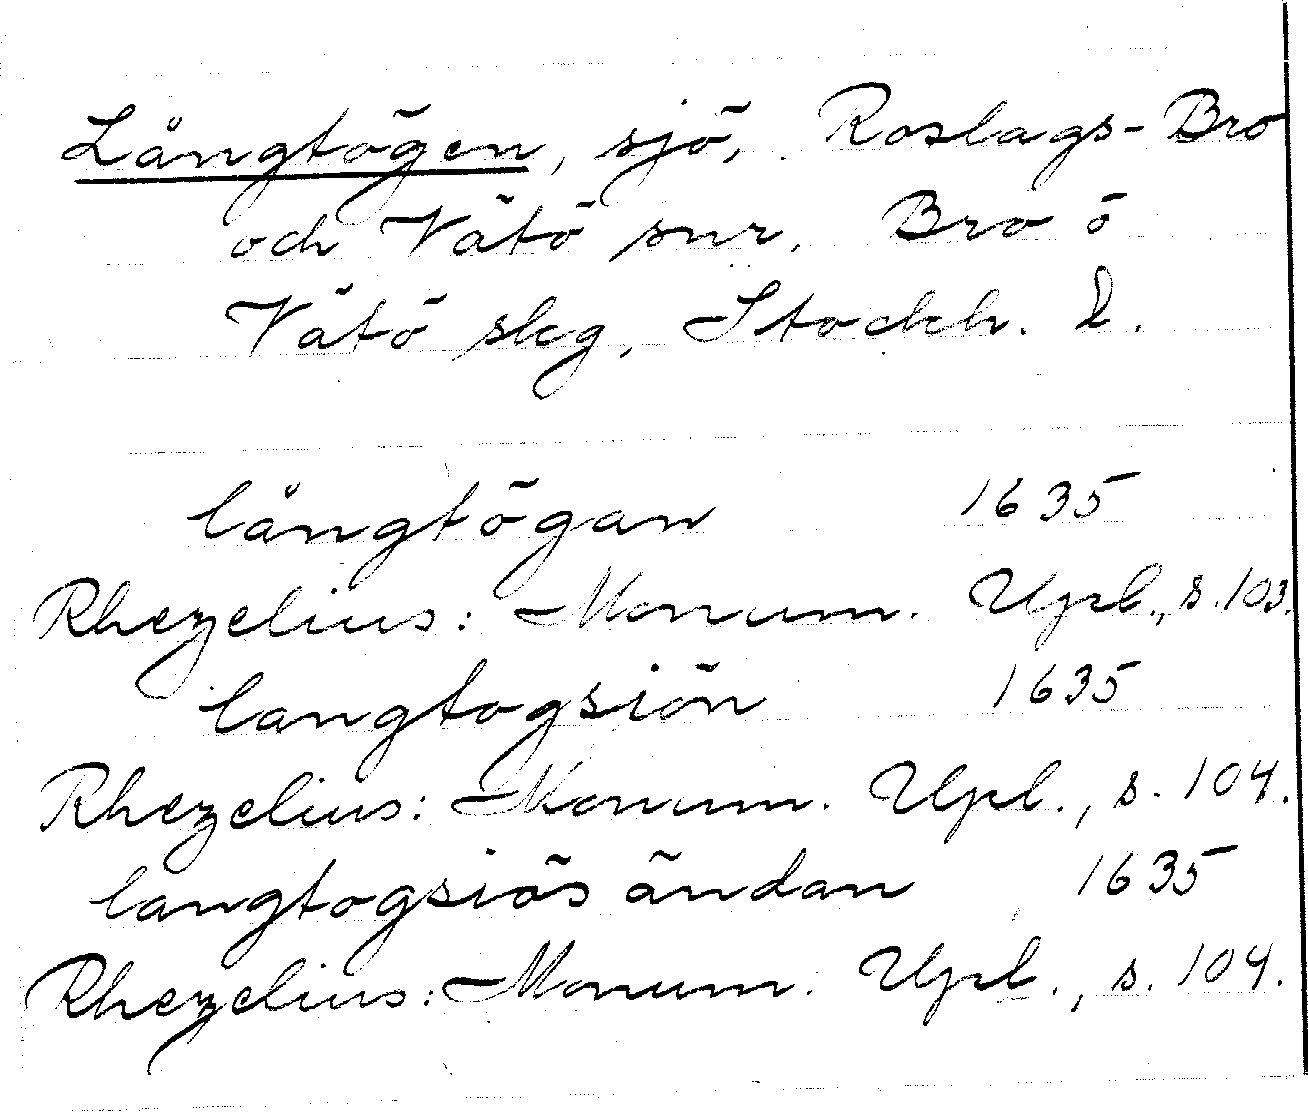 Långtögen, sjö, Roslags-Bro
och Vätö snr, Bro ö
Vätö skg, Stockh. l.
långtögan 1635
Rhezelius: Monum. Upl., s. 103.
langtogsiön 1635
Rhezelius: Monum. Upl., s. 104.
langtogsiös ändan 1635
Rhezelius: Monum. Upl., s. 104.